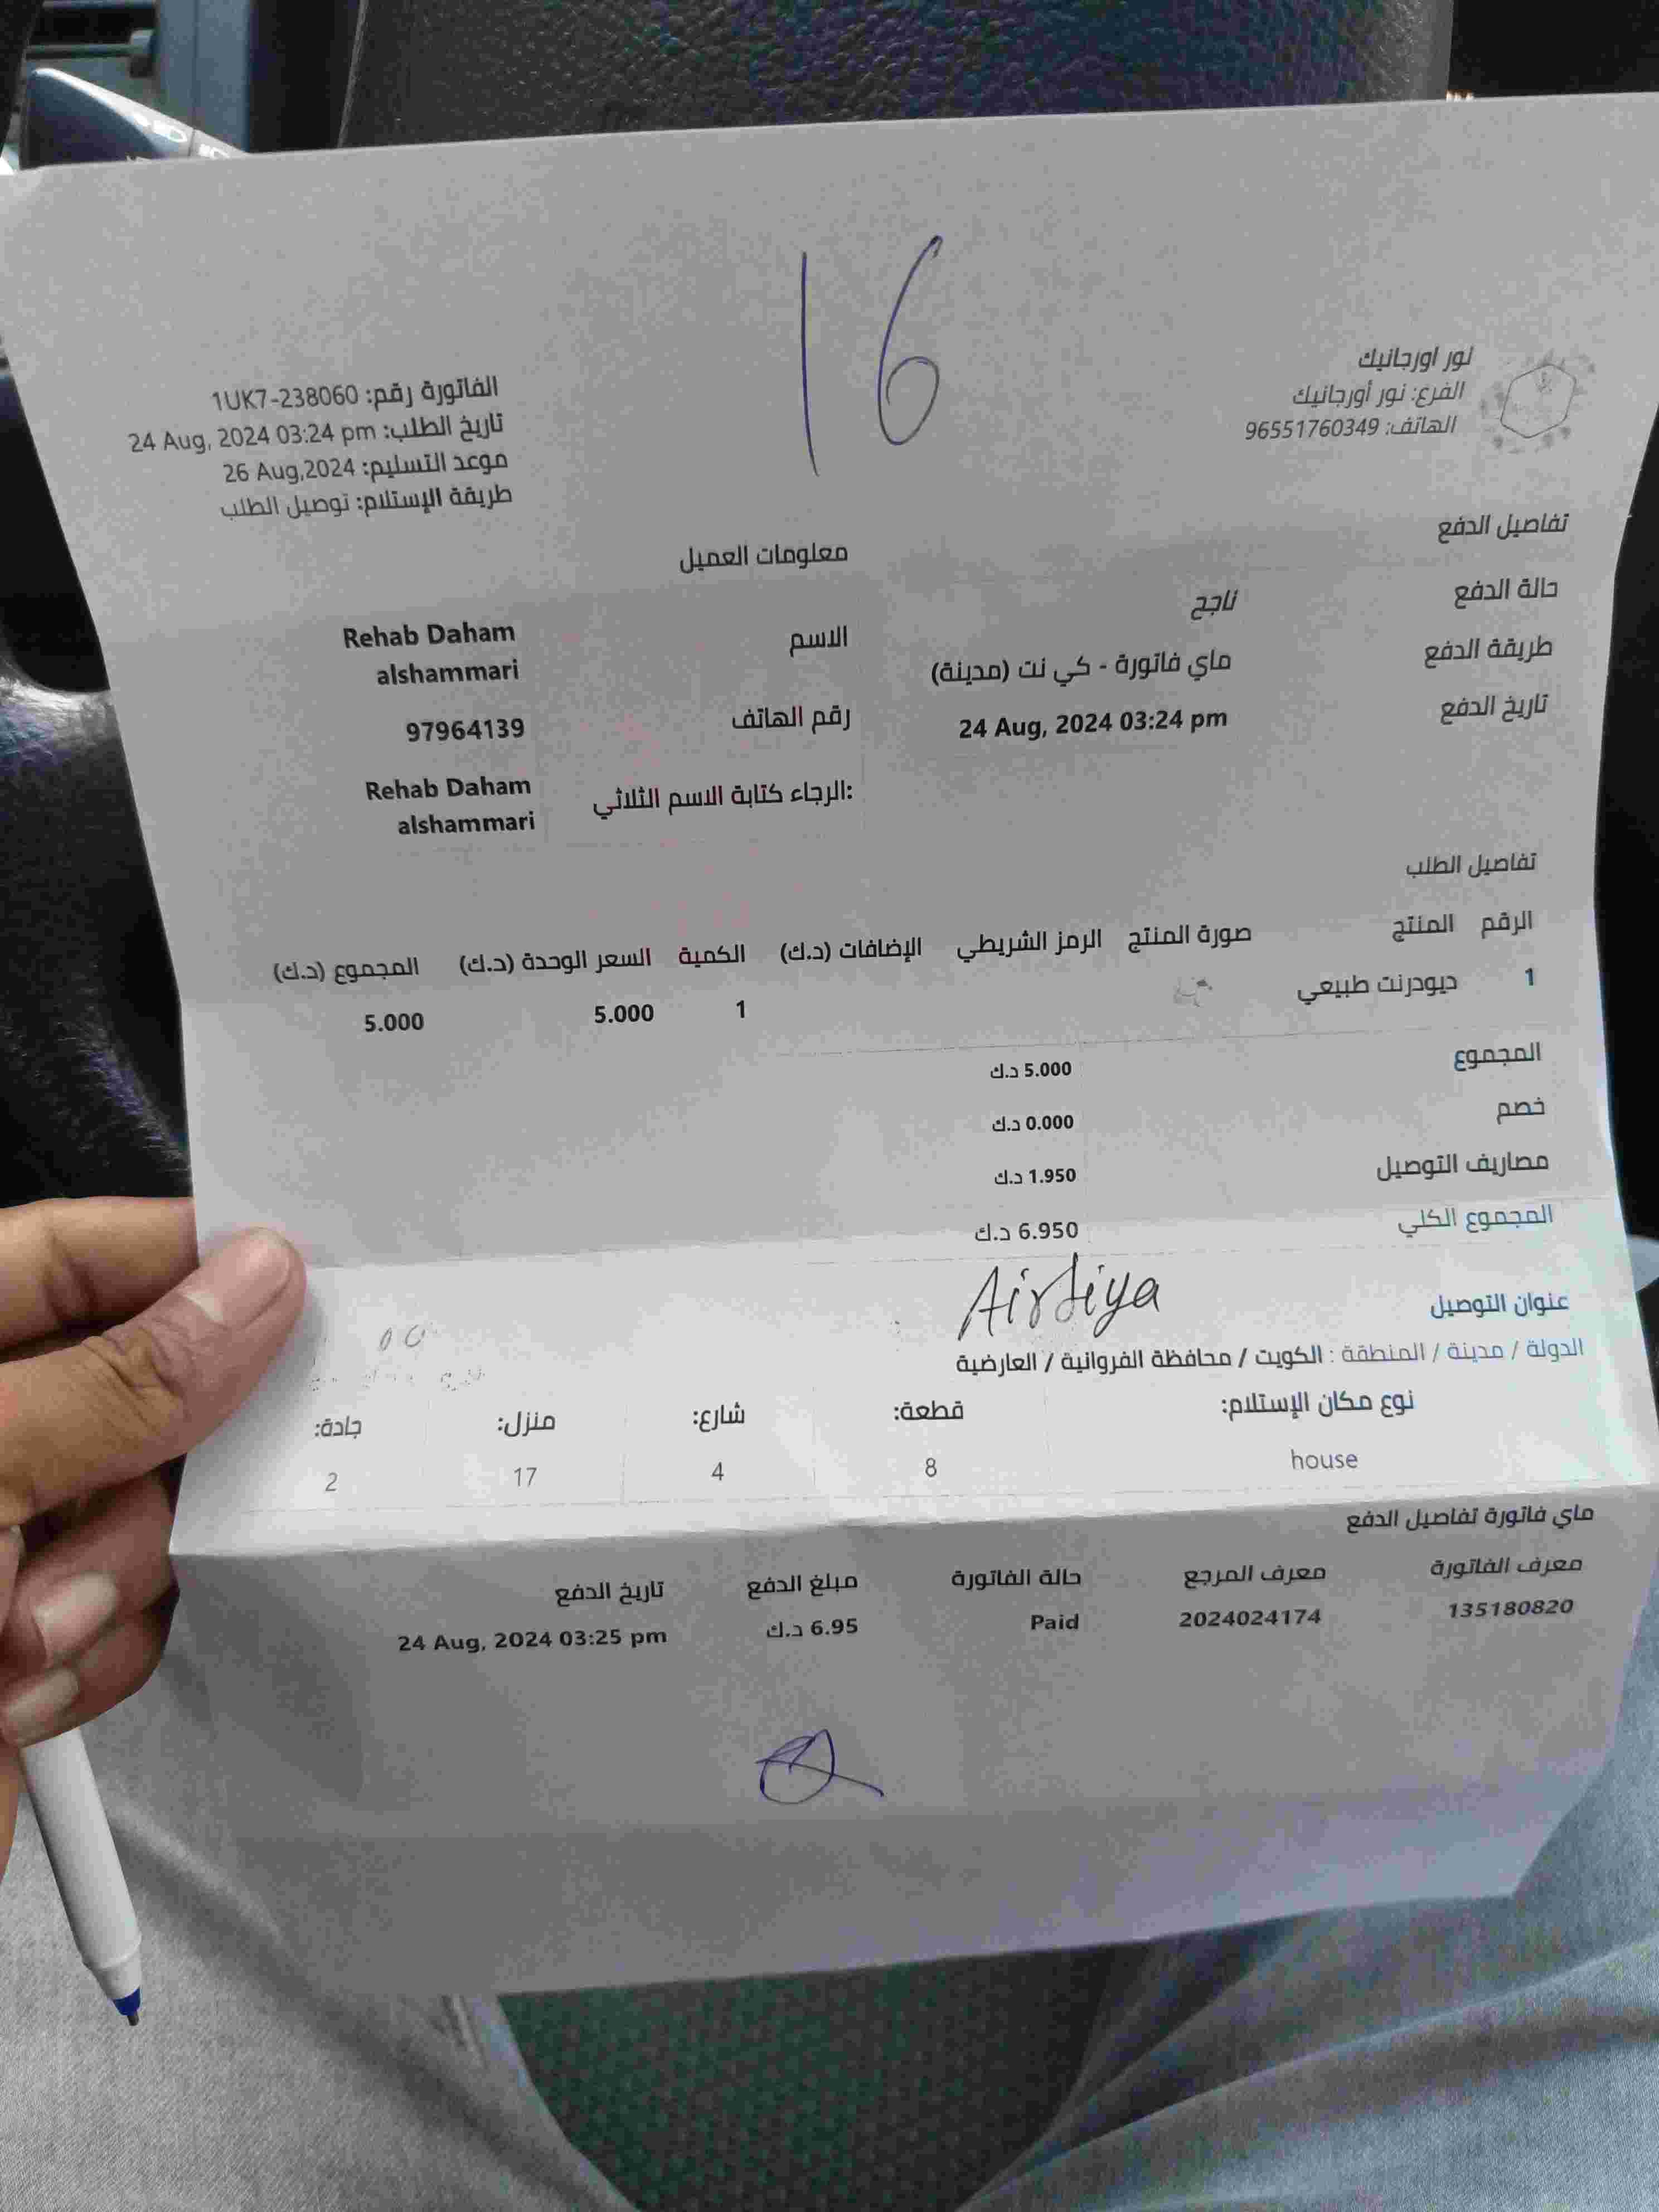 16
نور اورجانيك
الفرع: نور أورجانيك
الهاتف: 96551760349
الفاتورة رقم: 1UK7-238060
تاريخ الطلب: 24 Aug, 2024 03:24 pm
موعد التسليم: 26 Aug,2024
طريقة الإستلام: توصيل الطلب
تفاصيل الدفع
حالة الدفع ناجح
طريقة الدفع ماي فاتورة - كي نت (مدينة)
تاريخ الدفع 24 Aug, 2024 03:24 pm
معلومات العميل
الاسم Rehab Daham
alshammari
رقم الهاتف 97964139
الرجاء كتابة الاسم الثلاثي: Rehab Daham
alshammari
تفاصيل الطلب
الرقم المنتج صورة المنتج الرمز الشريطي الإضافات (د.ك) الكمية السعر الوحدة (د.ك) المجموع (د.ك)
1 ديودرنت طبيعي 1 5.000 5.000
المجموع 5.000 د.ك
خصم 0.000 د.ك
مصاريف التوصيل 1.950 د.ك
المجموع الكلي 6.950 د.ك
عنوان التوصيل
الدولة / مدينة / المنطقة : الكويت / محافظة الفروانية / العارضية
نوع مكان الإستلام: قطعة: شارع: منزل: جادة:
house 8 4 17 2
ماي فاتورة تفاصيل الدفع
معرف الفاتورة معرف المرجع حالة الفاتورة مبلغ الدفع تاريخ الدفع
135180820 2024024174 Paid 6.95 د.ك 24 Aug, 2024 03:25 pm